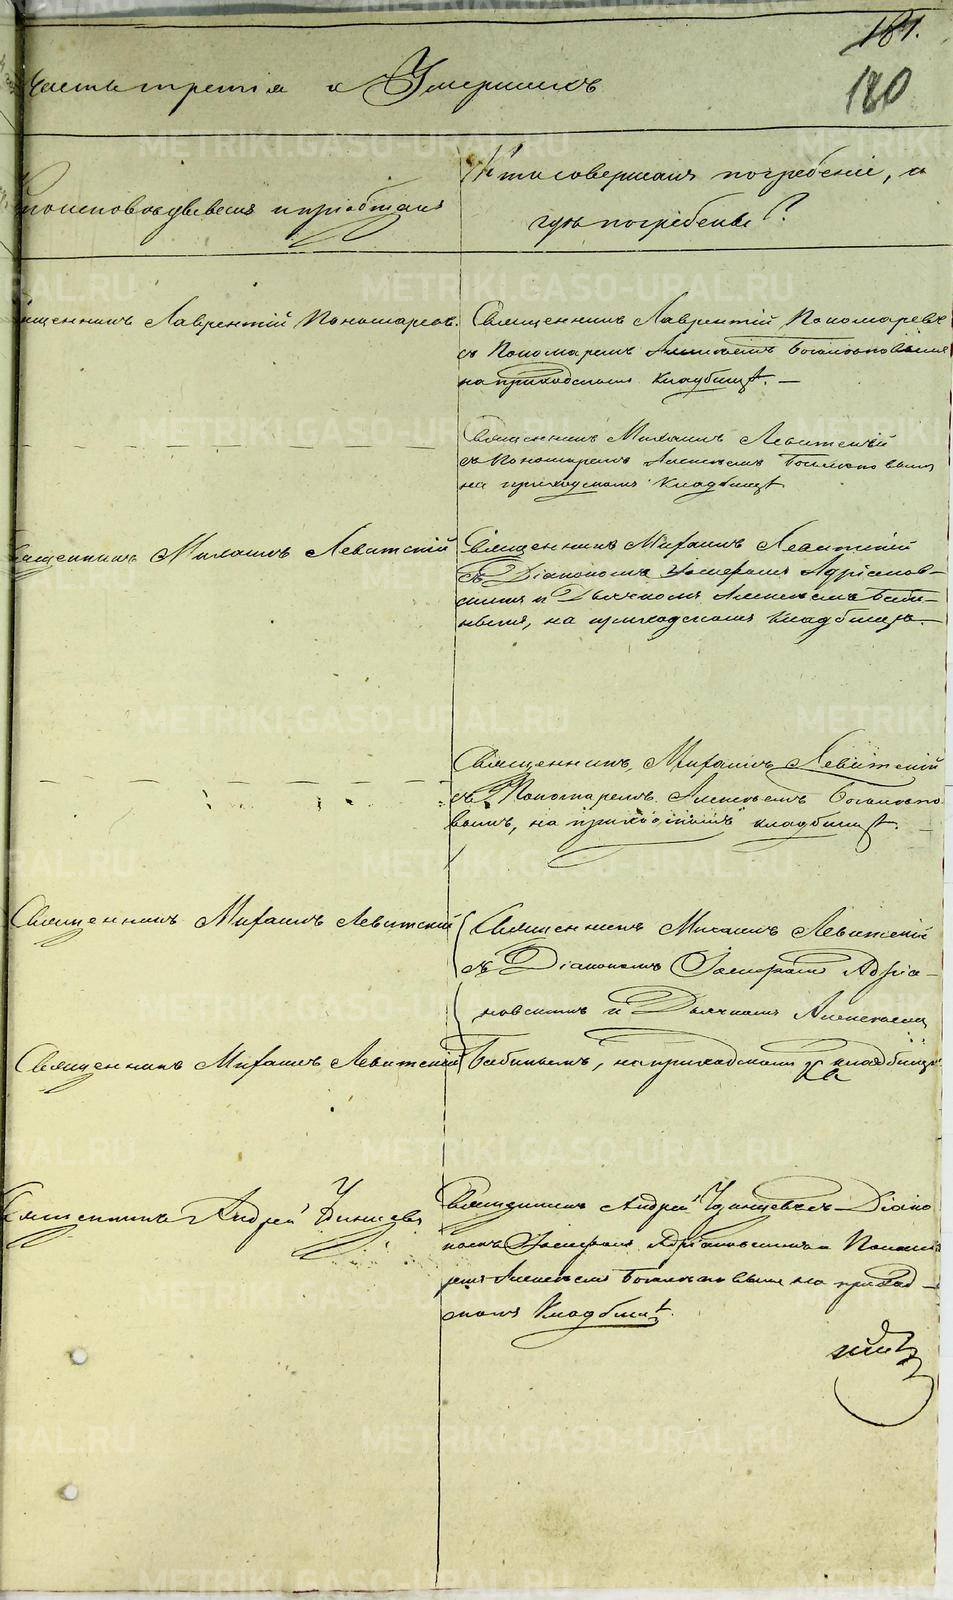 181.
180
Часть третія о Умершихъ
Кто исповѣдывалъ и пріобщалъ
Кто совершалъ погребеніе, и
гдѣ погребены?
Священникъ Лаврентій Пономаревъ.
Священникъ Лаврентій Пономаревъ
съ Пономаремъ Алексѣемъ Богомоловымъ
на приходскомъ кладбищѣ. —
Священникъ Михаилъ Левитскій
съ Пономаремъ Алексѣемъ
на приходскомъ кладбищѣ
Священникъ Михаилъ Левитскій
Священникъ Михаилъ Левитскій
съ Діакономъ Іосифомъ Адріанов-
скимъ и Дьячкомъ Алексѣемъ Баби-
нымъ, на приходскомъ кладбищѣ. —
Священникъ Михаилъ Левитскій
съ Пономаремъ Алексѣемъ
вымъ, на приходскомъ кладбищѣ. —
Священникъ Михаилъ Левитскій
Священникъ Михаилъ Левитскій
съ Діакономъ Іосифомъ Адріа-
новскимъ и Дьячкомъ Алексѣемъ
Священникъ Михаилъ Левитскій
Бабинымъ, на приходскомъ кладбищѣ.
Священникъ Андрей
Священникъ Андрей Діако
номъ Іосифомъ Адріановскимъ и Понома
ремъ Алексѣемъ на приход-
скомъ кладбищѣ.
METRIKI.GASO-URAL.RU